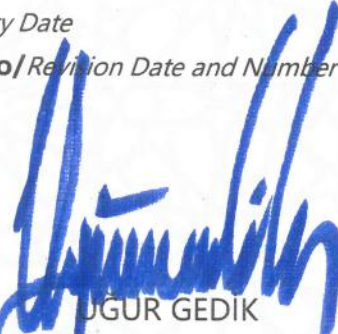 y Date
o/Revision Date and Number
UĞUR GEDİK